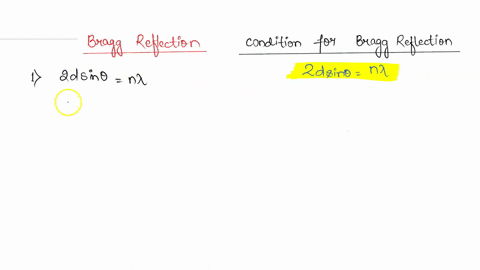 Bragg Reflection
Condition for Bragg Reflection
2dsinθ = nλ
1) 2dsinθ = nλ